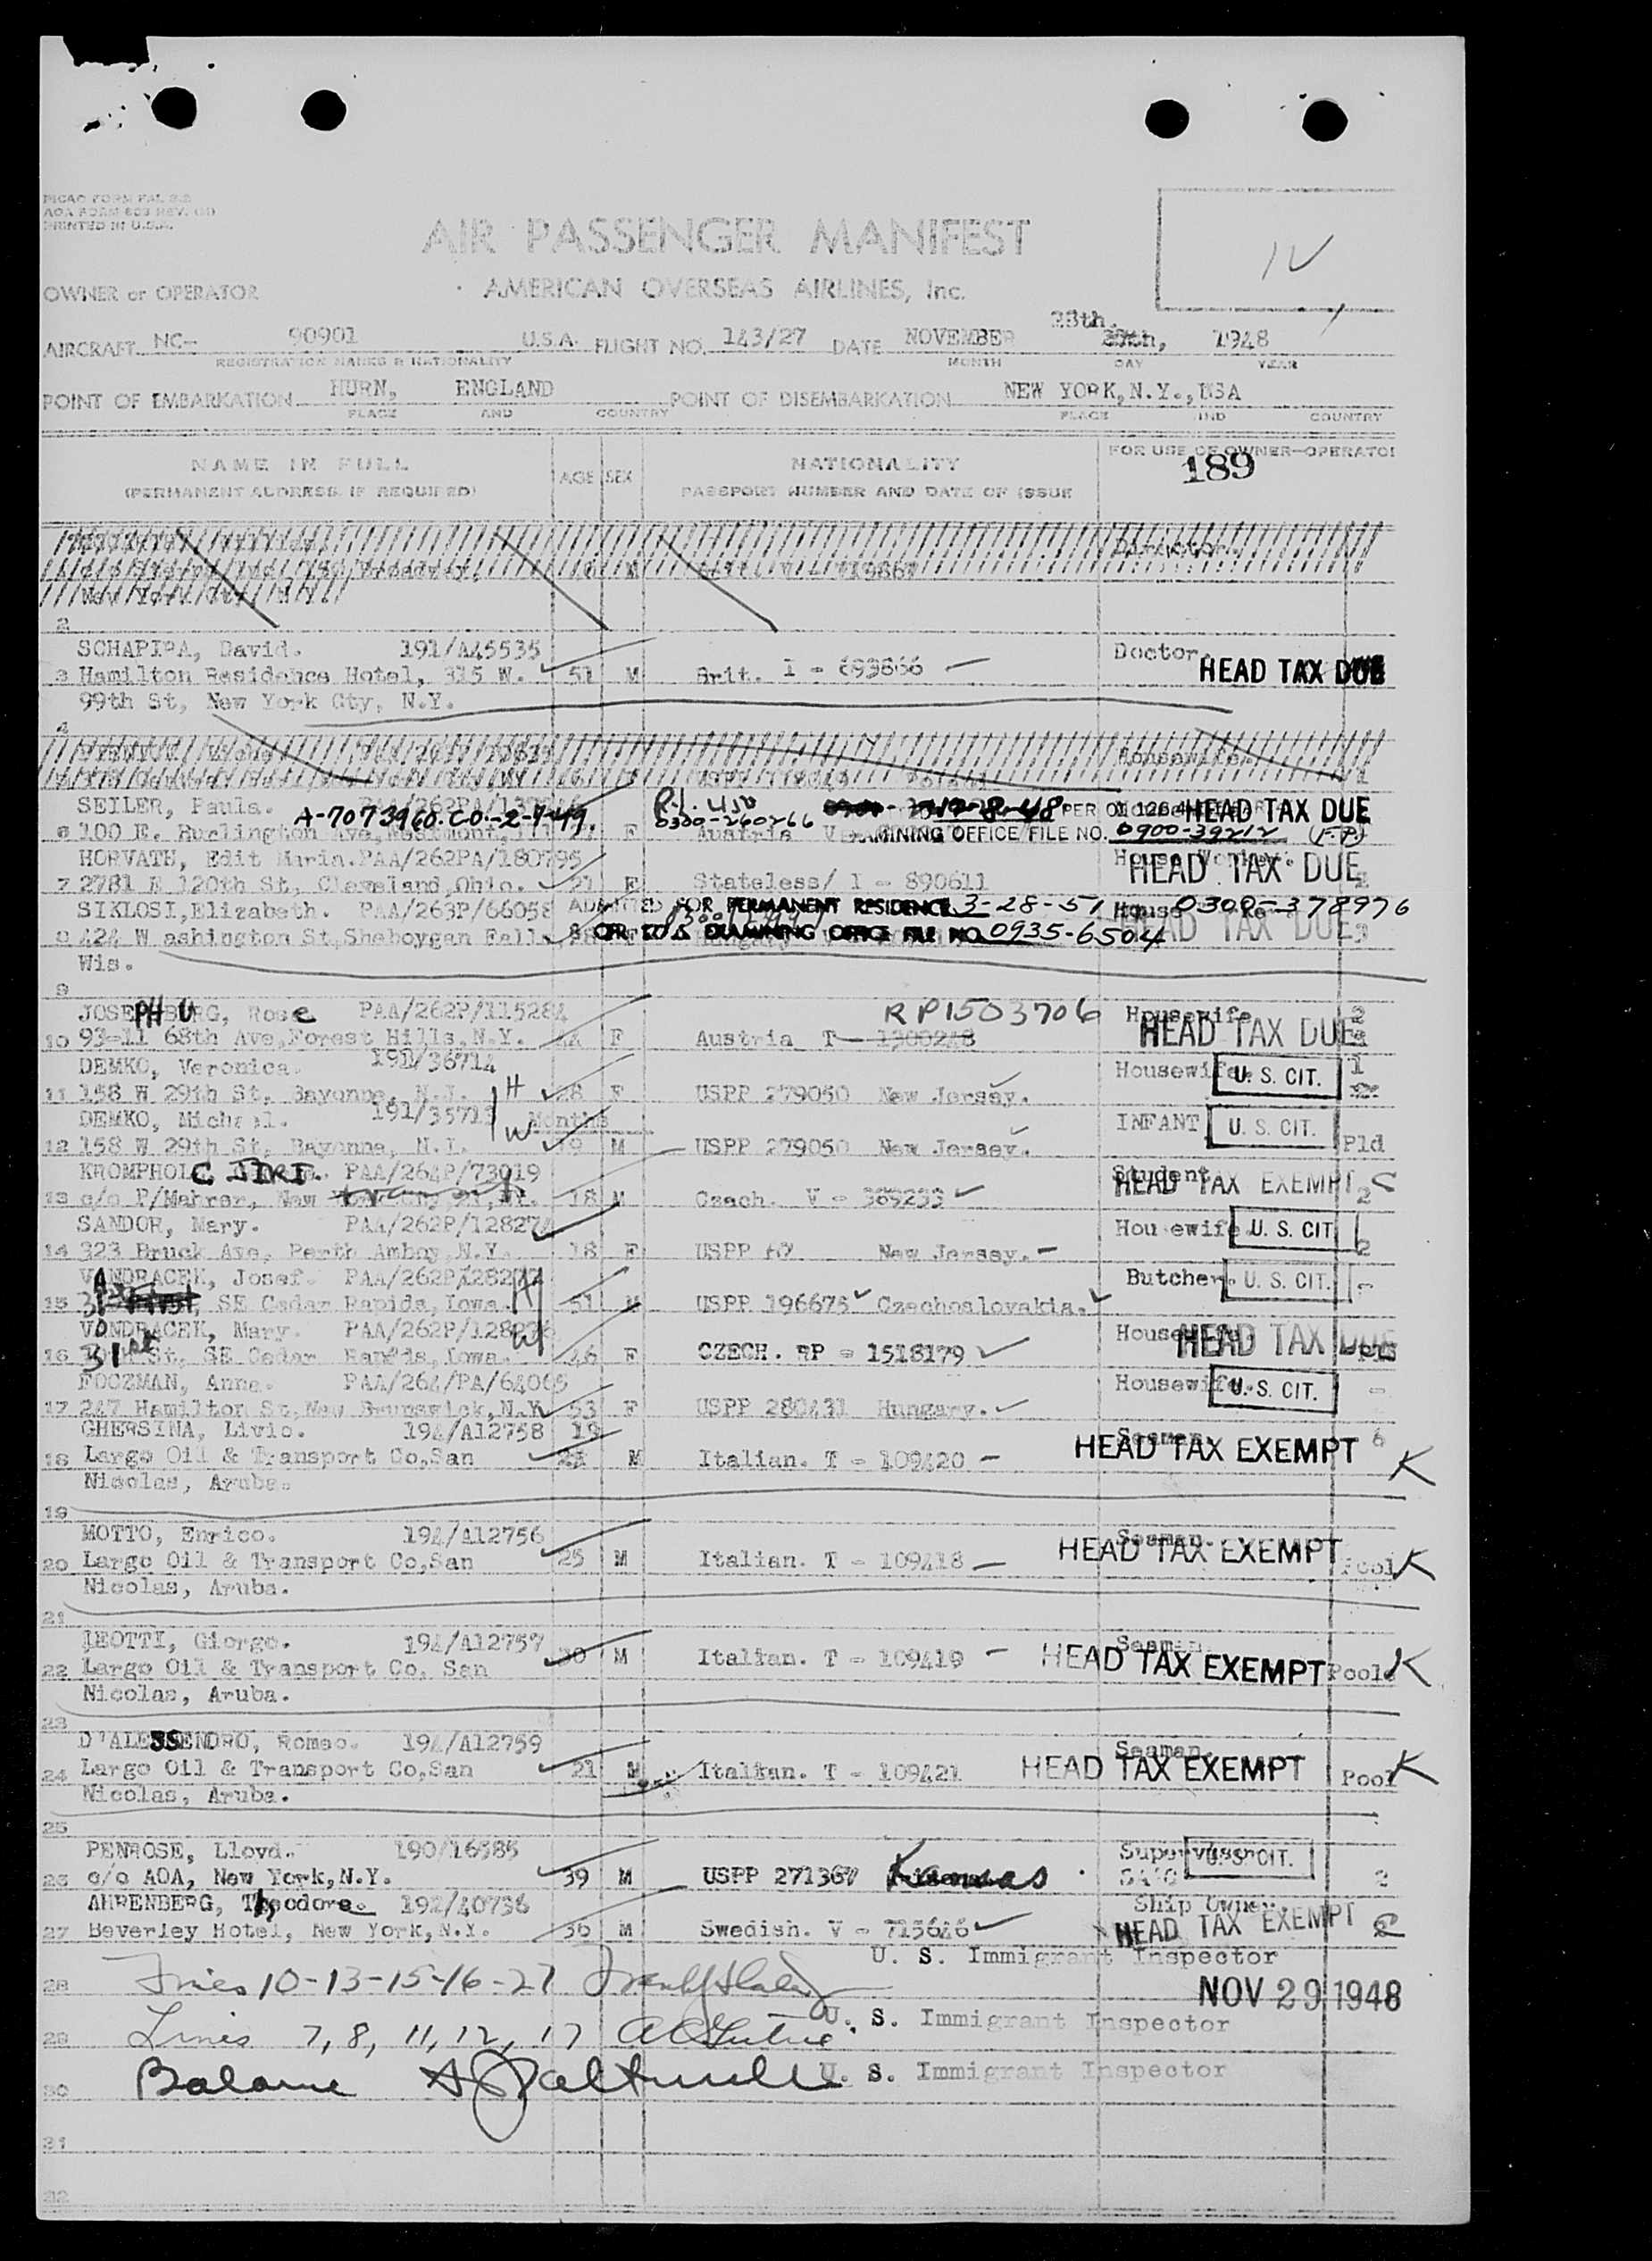 PICAO FORM FAL 2.2
AOA FORM 603 REV.
PRINTED IN U.S.A.
AIR PASSENGER MANIFEST
IV
OWNER or OPERATOR
AMERICAN OVERSEAS AIRLINES, Inc.
28th.
AIRCRAFT NC- 90901 U.S.A. FLIGHT NO. 143/27 DATE NOVEMBER 1948
REGISTRATION MARKS & NATIONALITY MONTH DAY YEAR
POINT OF EMBARKATION HURN, ENGLAND POINT OF DISEMBARKATION NEW YORK,N.Y.,USA
PLACE AND COUNTRY PLACE AND COUNTRY
NAME IN FULL AGE SEX NATIONALITY FOR USE OF OWNER-OPERATOR
(PERMANENT ADDRESS IF REQUIRED) PASSPORT NUMBER AND DATE OF ISSUE 189
Director
2
SCHAPIRA, David. 191/A45535 Doctor.
3 Hamilton Residence Hotel, 315 W. 51 M Brit. I - 693866 HEAD TAX DUE
99th St, New York Cty, N.Y.
4
Housewife.
SEILER, Paula. PAA/262PA/ A-7073960.C.O.-2-7-49. 12-8-48 PER HEAD TAX DUE
6 100 E. Burlington Ave, F 0300-260266 Austria V EXAMINING OFFICE FILE NO. 0900-39212 (F.P)
HORVATH, Edit Maria.PAA/262PA/180795 House Worker.
7 2781 E 120th St, Cleveland,Ohio. 21 F Stateless/ I - 890611 HEAD TAX DUE
SIKLOSI,Elizabeth. PAA/263P/66058 ADMITTED FOR PERMANENT RESIDENCE 3-28-51 House 0300-378976
8 424 W ashington St,Sheboygan Falls EXAMINING OFFICE FILE NO. 0935-6504 HEAD TAX DUE
Wis.
9
JOSEPHBURG, Rose PAA/262P/115284 RP1503706 Housewife
10 93-11 68th Ave,Forest Hills,N.Y. F Austria T- 1300248 HEAD TAX DUE
DEMKO, Veronica. 191/36714 Housewife.
11 158 W 29th St, Bayonne, N.J. H 28 F USPP 279050 New Jersey. U. S. CIT.
DEMKO, Michael. 191/35713 Months INFANT
12 158 W 29th St, Bayonne, N.J. W 9 M USPP 279050 New Jersey. U. S. CIT. Pld
KROMPHOLC JIRI. PAA/264P/73019 Student
13 c/o P/Mahrer, New 18 M Czech. V - 389233 HEAD TAX EXEMPT C
SANDOR, Mary. PAA/262P/128274 Housewife
14 323 Bruck Ave, Perth Amboy,N.Y. 18 F USPP New Jersey. U. S. CIT. 2
VANDRACEK, Josef. PAA/262P/ H Butcher.
15 SE Cedar Rapids,Iowa. 51 M USPP 196675 Czechoslovakia. U. S. CIT.
VONDRACEK, Mary. PAA/262P/ W Housewife
16 31st St, SE Cedar Rapids,Iowa. 46 F CZECH. RP - 1518179 HEAD TAX DUE
FOCZMAN, Anna. PAA/264/PA/64065 Housewife.
17 247 Hamilton St,New Brunswick,N.Y. 53 F USPP 280431 Hungary. U. S. CIT.
GHERSINA, Livio. 194/A12758 19 Seaman.
18 Largo Oil & Transport Co,San M Italian. T - 109420 HEAD TAX EXEMPT K
Nicolas, Aruba.
19
MOTTO, Enrico. 194/A12756 Seaman.
20 Largo Oil & Transport Co,San 25 M Italian. T - 109418 HEAD TAX EXEMPT Pool K
Nicolas, Aruba.
21
LEOTTI, Giorgo. 194/A12757 Seaman.
22 Largo Oil & Transport Co, San 30 M Italian. T - 109419 HEAD TAX EXEMPT Poole K
Nicolas, Aruba.
23
D'ALESSENDRO, Romeo. 194/A12759 Seaman.
24 Largo Oil & Transport Co,San 21 M Italian. T - 109421 HEAD TAX EXEMPT Pool K
Nicolas, Aruba.
25
PENROSE, Lloyd. 190/16585 Supervisor
26 c/o AOA, New York,N.Y. 39 M USPP 271367 Kansas. U. S. CIT. 2
AHRENBERG, Theodore. 192/40736 Ship Owner.
27 Beverley Hotel, New York,N.Y. 36 M Swedish. V - 715646 HEAD TAX EXEMPT C
U. S. Immigrant Inspector
28 Lines 10-13-15-16-27 NOV 29 1948
U. S. Immigrant Inspector
29 Lines 7, 8, 11, 12, 17
U. S. Immigrant Inspector
30 Balance
31
32